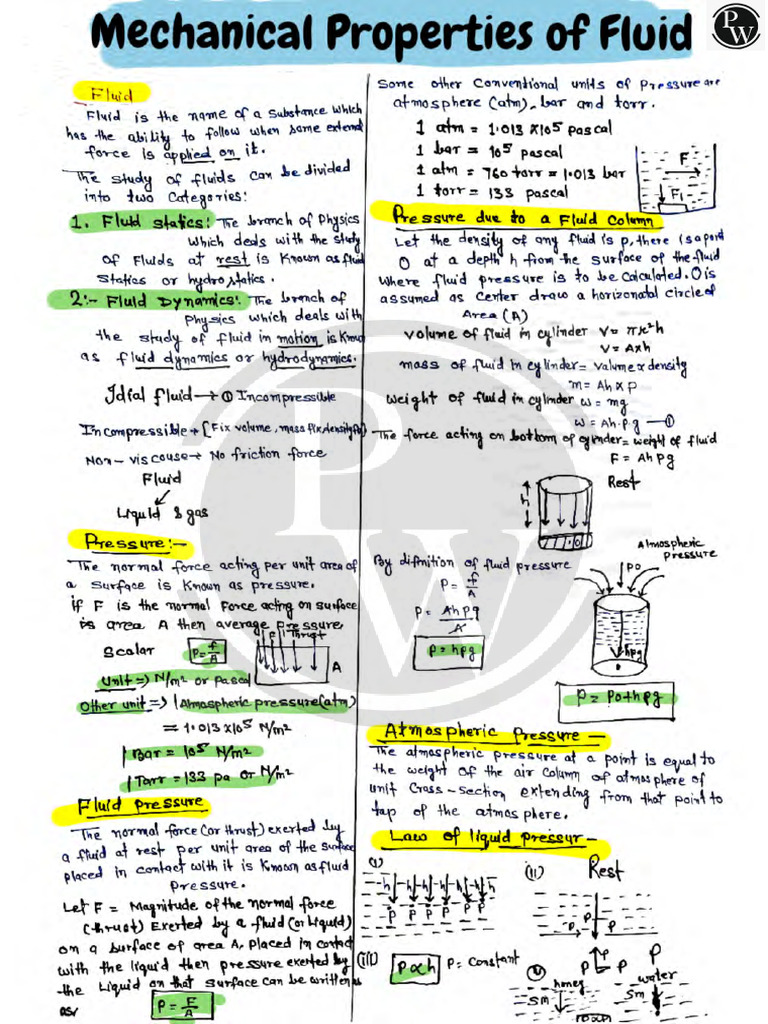 Mechanical Properties of Fluid
PW
Fluid
Fluid is the name of a substance which
has the ability to follow when some external
force is applied on it.
The study of fluids can be divided
into two categories:
1. Fluid statics: The branch of Physics
which deals with the study
of Fluids at rest is known as fluid
statics or hydrostatics.
2:- Fluid Dynamics: The branch of
Physics which deals with
the study of fluid in motion is known
as fluid dynamics or hydrodynamics.
Idial fluid → ① Incompressible
Incompressible → [Fix volume, mass fix, density fix]
Non-viscouse → No friction force
Fluid
Liquid & gas
Pressure:-
The normal force acting per unit area of
a surface is known as pressure.
if F is the normal Force acting on surface
is area A then average pressure
F Thrust
Scalar P = F/A
A
Unit => N/m² or Pascal
Other unit => 1 Atmospheric pressure (atm)
= 1.013 x 10⁵ N/m²
1 Bar = 10⁵ N/m²
1 Tarr = 133 pa or N/m²
Fluid pressure
The normal force (or thrust) exerted by
a fluid at rest per unit area of the surface
placed in contact with it is known as fluid
pressure.
Let F = Magnitude of the normal force
(thrust) Exerted by a fluid (or liquid)
on a surface of area A, placed in contact
with the liquid then pressure exerted by
the Liquid on that surface can be written
as
P = F/A
Some other conventional units of pressure are
atmosphere (atm), bar and torr.
1 atm = 1.013 x 10⁵ pascal
1 bar = 10⁵ pascal
1 atm = 760 torr = 1.013 bar
1 torr = 133 pascal
F
F₁
Pressure due to a Fluid Column
Let the density of any fluid is ρ, there is a point
O at a depth h from the surface of the fluid
where fluid pressure is to be calculated. O is
assumed as center draw a horizonatal circle of
Area (A)
volume of fluid in cylinder V = πr²h
V = Axh
mass of fluid in cylinder = volume x density
m = Ah x ρ
weight of fluid in cylinder w = mg
w = Ah.ρ.g —①
The force acting on bottom of cylinder = weight of fluid
F = Ahρg
Rest
h
O
By difinition of fluid pressure
P = F/A
P = Ahρg/A
P = hρg
Atmospheric
pressure
Po
hρg
P = Po + hρg
Atmospheric Pressure —
The atmospheric pressure at a point is equal to
the weight of the air column of atmosphere of
unit cross-section extending from that point to
tap of the atmosphere.
Law of liquid pressur —
(i)
h h h h h h
P P P P P P
(ii) Rest
P P
P P P
(iii) P∝h P = constant
P
honey
5m
water
5m